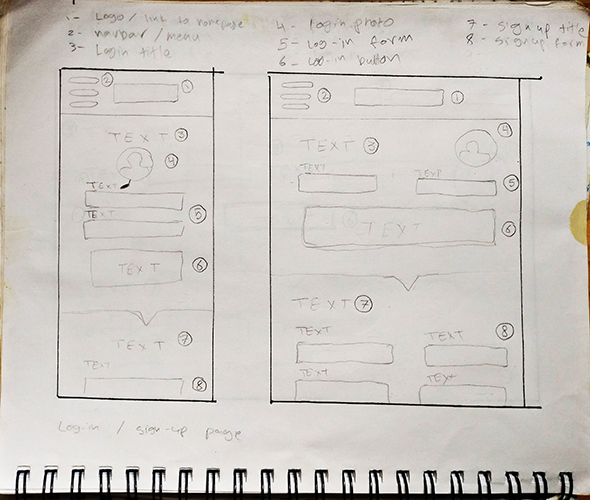 1- Logo / link to homepage
2- navbar / menu
3- Login title
4- login photo
5- Log-in form
6- Log-in button
7- sign up title
8- signup form
2
1
TEXT 3
4
TEXT
TEXT
5
TEXT
6
TEXT 7
TEXT
8
2
1
TEXT 3
4
TEXT TEXT
5
TEXT
6
TEXT 7
8
TEXT TEXT
TEXT TEXT
Login / sign-up page